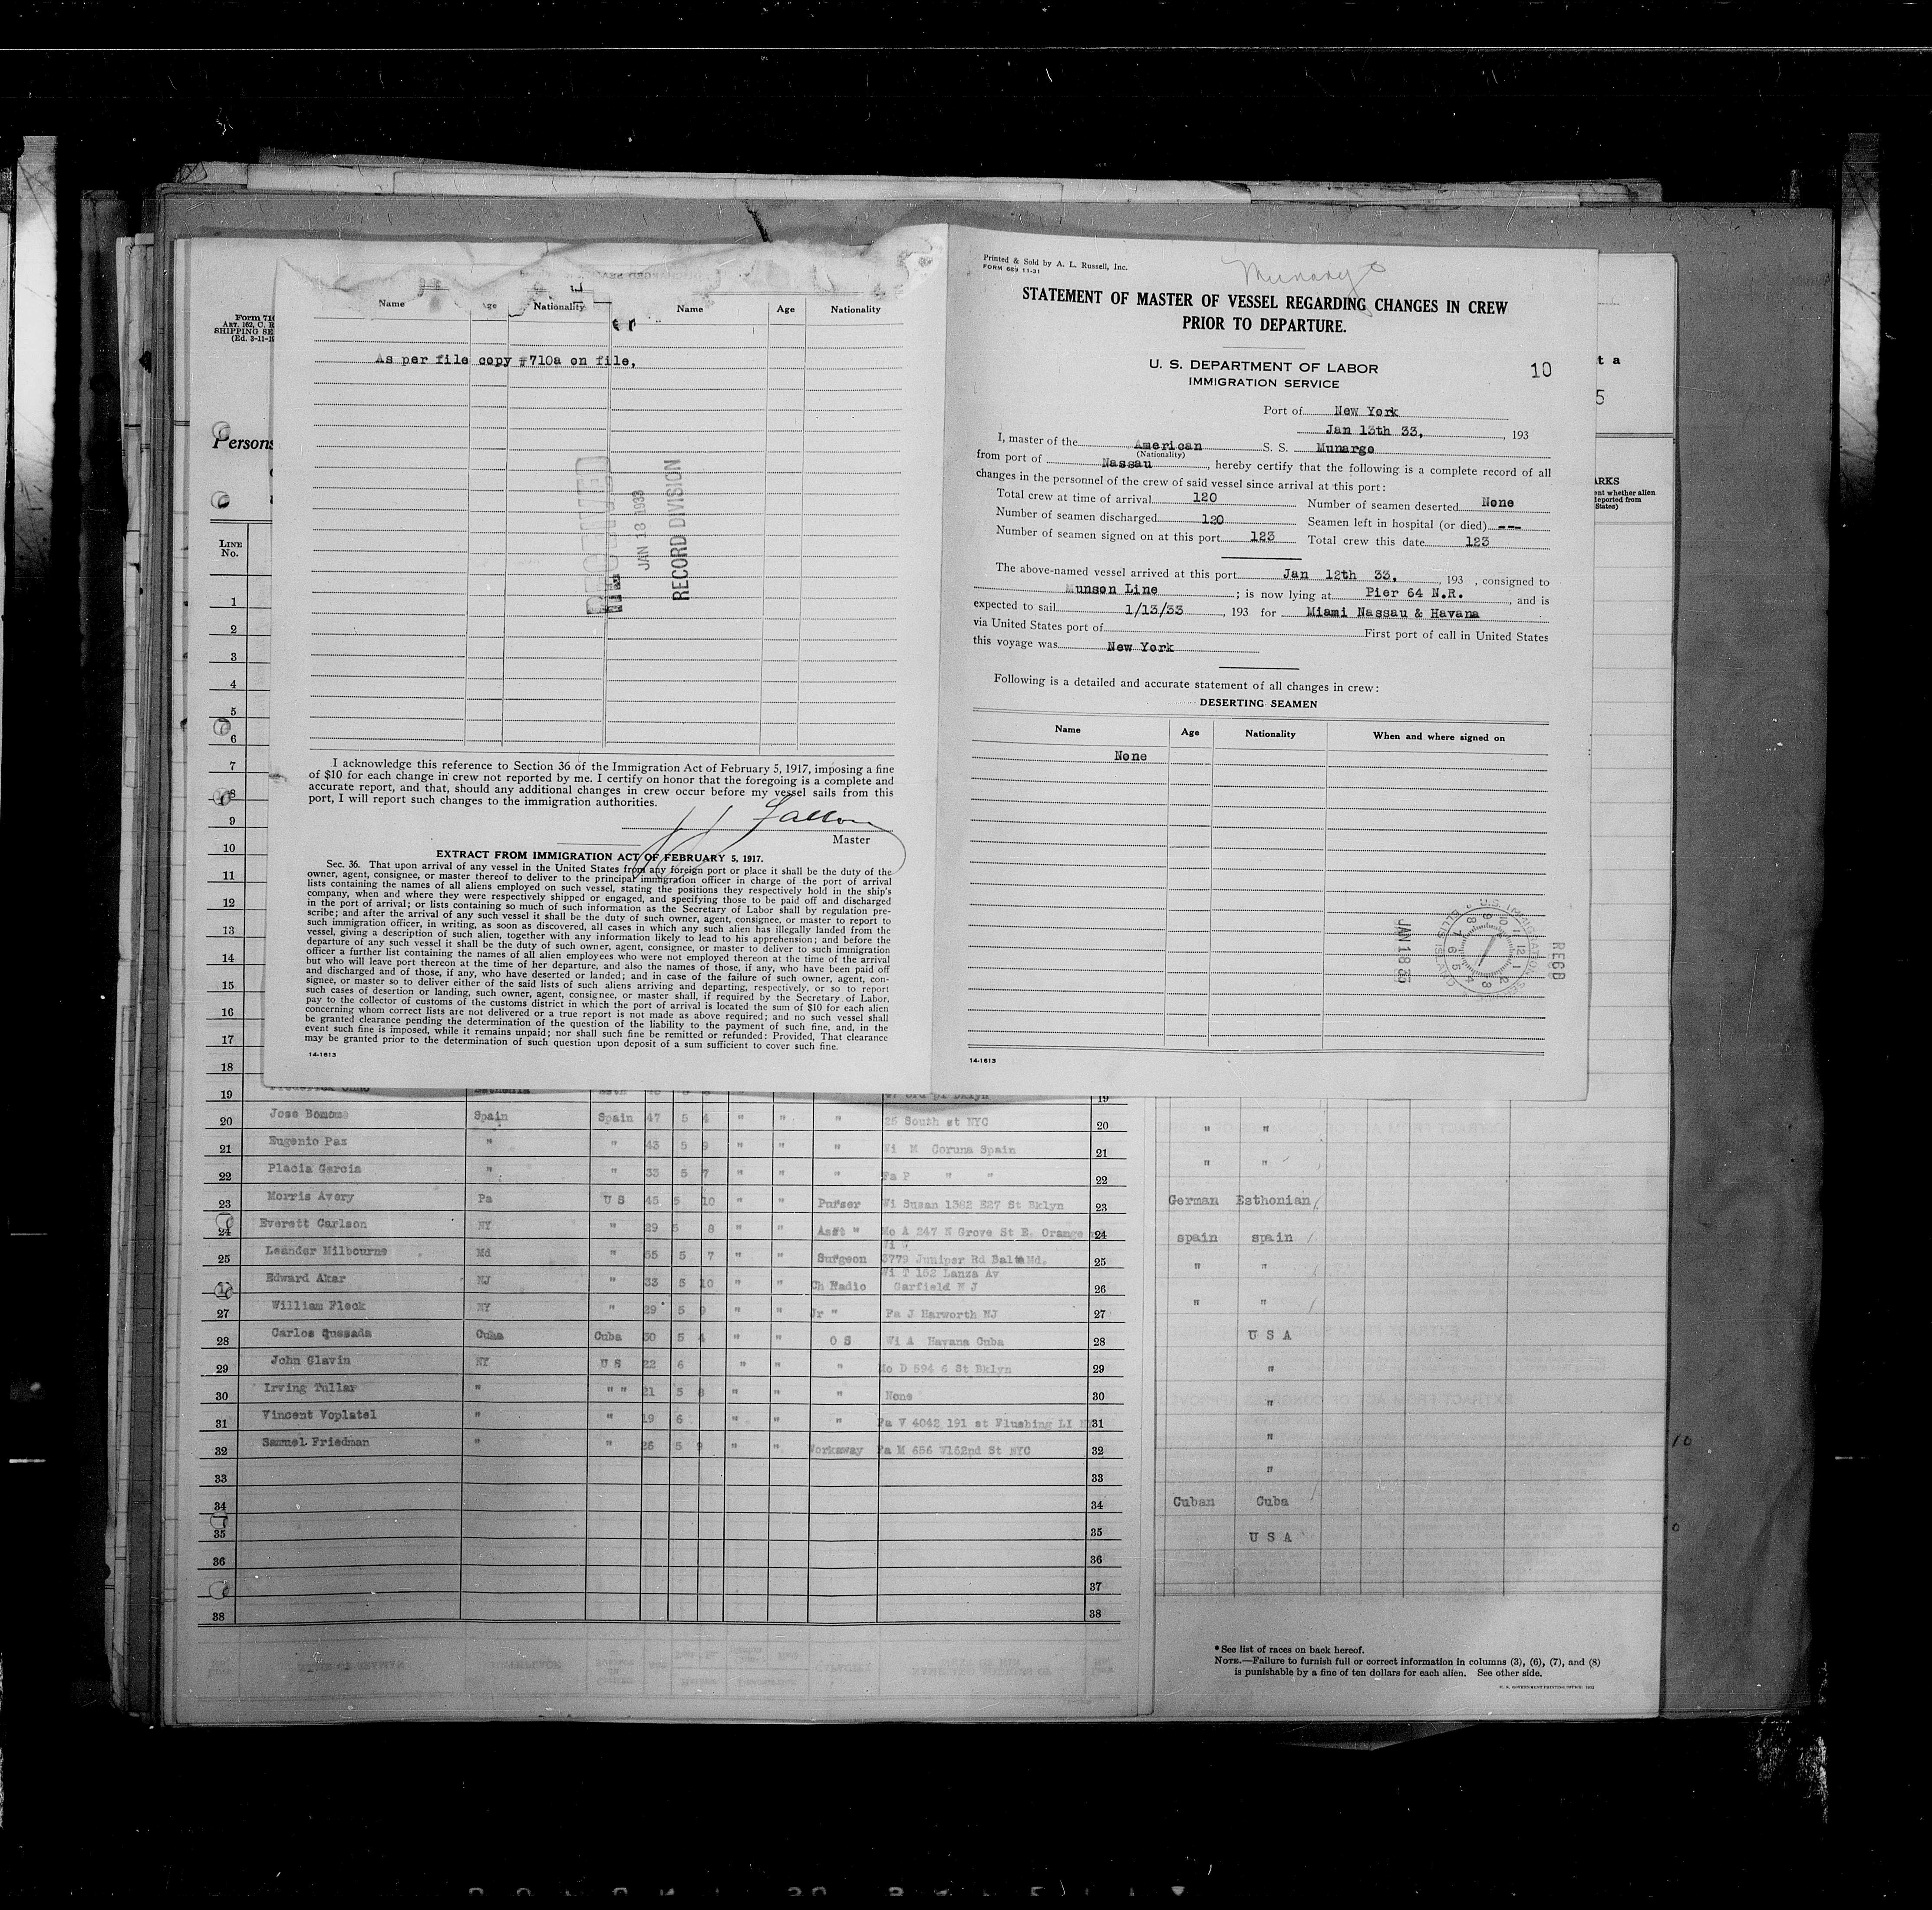 Name Age Nationality Name Age Nationality
As per file copy #710a on file,
JAN 18 1933
RECORD DIVISION
I acknowledge this reference to Section 36 of the Immigration Act of February 5, 1917, imposing a fine
of $10 for each change in crew not reported by me. I certify on honor that the foregoing is a complete and
accurate report, and that, should any additional changes in crew occur before my vessel sails from this
port, I will report such changes to the immigration authorities.
Master
EXTRACT FROM IMMIGRATION ACT OF FEBRUARY 5, 1917.
Sec. 36. That upon arrival of any vessel in the United States from any foreign port or place it shall be the duty of the
owner, agent, consignee, or master thereof to deliver to the principal immigration officer in charge of the port of arrival
lists containing the names of all aliens employed on such vessel, stating the positions they respectively hold in the ship's
company, when and where they were respectively shipped or engaged, and specifying those to be paid off and discharged
in the port of arrival; or lists containing so much of such information as the Secretary of Labor shall by regulation pre-
scribe; and after the arrival of any such vessel it shall be the duty of such owner, agent, consignee, or master to report to
such immigration officer, in writing, as soon as discovered, all cases in which any such alien has illegally landed from the
vessel, giving a description of such alien, together with any information likely to lead to his apprehension; and before the
departure of any such vessel it shall be the duty of such owner, agent, consignee, or master to deliver to such immigration
officer a further list containing the names of all alien employees who were not employed thereon at the time of the arrival
but who will leave port thereon at the time of her departure, and also the names of those, if any, who have been paid off
and discharged and of those, if any, who have deserted or landed; and in case of the failure of such owner, agent, con-
signee, or master so to deliver either of the said lists of such aliens arriving and departing, respectively, or so to report
such cases of desertion or landing, such owner, agent, consignee, or master shall, if required by the Secretary of Labor,
pay to the collector of customs of the customs district in which the port of arrival is located the sum of $10 for each alien
concerning whom correct lists are not delivered or a true report is not made as above required; and no such vessel shall
be granted clearance pending the determination of the question of the liability to the payment of such fine, and, in the
event such fine is imposed, while it remains unpaid; nor shall such fine be remitted or refunded: Provided, That clearance
may be granted prior to the determination of such question upon deposit of a sum sufficient to cover such fine.
14-1613
Printed & Sold by A. L. Russell, Inc.
FORM 689 11-31
Munargo
STATEMENT OF MASTER OF VESSEL REGARDING CHANGES IN CREW
PRIOR TO DEPARTURE.
U. S. DEPARTMENT OF LABOR
IMMIGRATION SERVICE
10
Port of New York
Jan 13th 33, , 193
I, master of the American S. S. Munargo
(Nationality)
from port of Nassau , hereby certify that the following is a complete record of all
changes in the personnel of the crew of said vessel since arrival at this port:
Total crew at time of arrival 120 Number of seamen deserted None
Number of seamen discharged 120 Seamen left in hospital (or died) ---
Number of seamen signed on at this port 123 Total crew this date 123
The above-named vessel arrived at this port Jan 12th 33, , 193 , consigned to
Munson Line ; is now lying at Pier 64 N.R. , and is
expected to sail 1/13/33 , 193 for Miami Nassau & Havana
via United States port of First port of call in United States
this voyage was New York
Following is a detailed and accurate statement of all changes in crew:
DESERTING SEAMEN
Name Age Nationality When and where signed on
None
JAN 18 33
RECD
14-1613
Form 710
SHIPPING SE
(Ed. 3-11-19
Persons
LINE
No.
1
2
3
4
5
6
7
8
9
10
11
12
13
14
15
16
17
18
19 19
20 Jose Bomome Spain Spain 47 5 4 " " " 25 South st NYC 20
21 Eugenio Paz " " 43 5 9 " " " Wi M Coruna Spain 21
22 Placia Garcia " " 33 5 7 " " " Fa P " " 22
23 Morris Avery Pa U S 45 5 10 " " Purser Wi Susan 1382 E27 St Bklyn 23
24 Everett Carlson NY " 29 5 8 " " Asst " Mo A 247 N Grove St E. Orange 24
25 Leander Milbourne Md " 55 5 7 " " Surgeon Wi W 3779 Juniper Rd Balto Md. 25
26 Edward Aker NJ " 33 5 10 " " Ch Radio Wi T 152 Lanza Av Garfield N J 26
27 William Fleck NY " 29 5 9 " " Jr " Fa J Harworth NJ 27
28 Carlos Quesada Cuba Cuba 30 5 4 " " O S Wi A Havana Cuba 28
29 John Glavin NY U S 22 6 " " " Mo D 594 6 St Bklyn 29
30 Irving Tullar " " " 21 5 8 " " " None 30
31 Vincent Voplatel " " 19 6 " " " Fa V 4042 191 st Flushing LI 31
32 Samuel Friedman " " 26 5 9 " " Workaway Fa M 656 W162nd St NYC 32
33 33
34 34
35 35
36 36
37
38 38
t a
5
ARKS
ent whether alien
deported from
States)
" "
" "
German Esthonian
spain spain
" "
" "
U S A
"
"
"
"
Cuban Cuba
U S A
*See list of races on back hereof.
NOTE.—Failure to furnish full or correct information in columns (3), (6), (7), and (8)
is punishable by a fine of ten dollars for each alien. See other side.